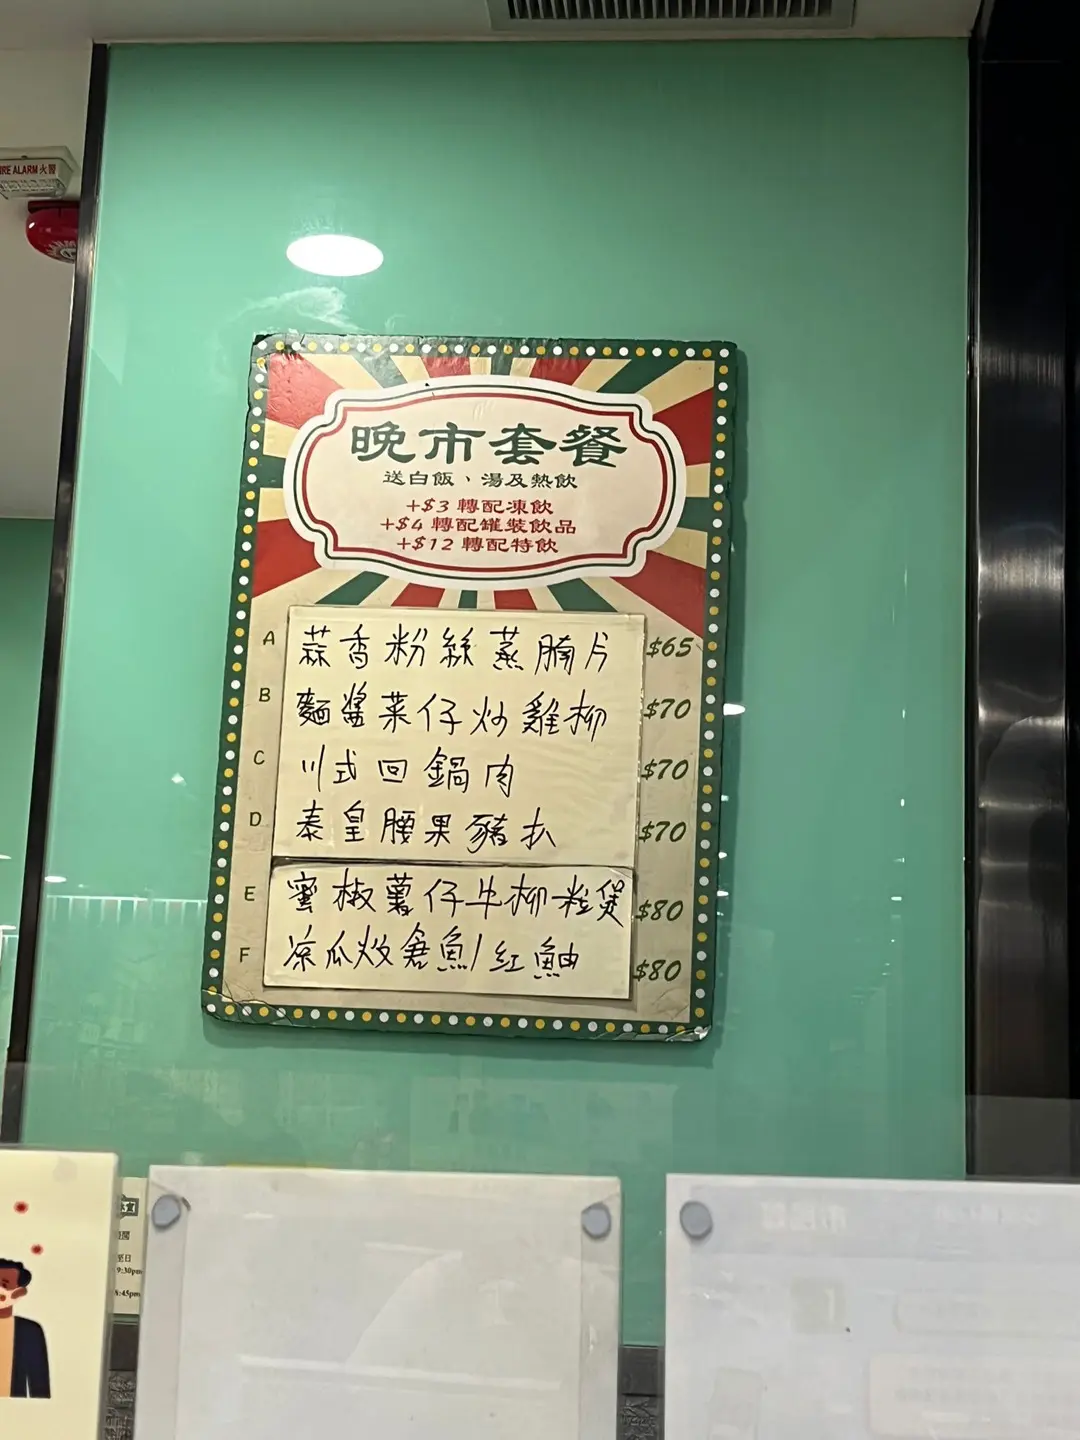 FIRE ALARM 火警
晚市套餐
送白飯、湯及熱飲
+$3 轉配凍飲
+$4 轉配罐裝飲品
+$12 轉配特飲
A 蒜香粉絲蒸腩片 $65
B 麵醬菜仔炒雞柳 $70
C 川式回鍋肉 $70
D 泰皇腰果豬扒 $70
E 蜜椒薯仔牛柳粒煲 $80
F 凉瓜炆倉魚/紅魚由 $80
至日
9:30pm
8:45pm